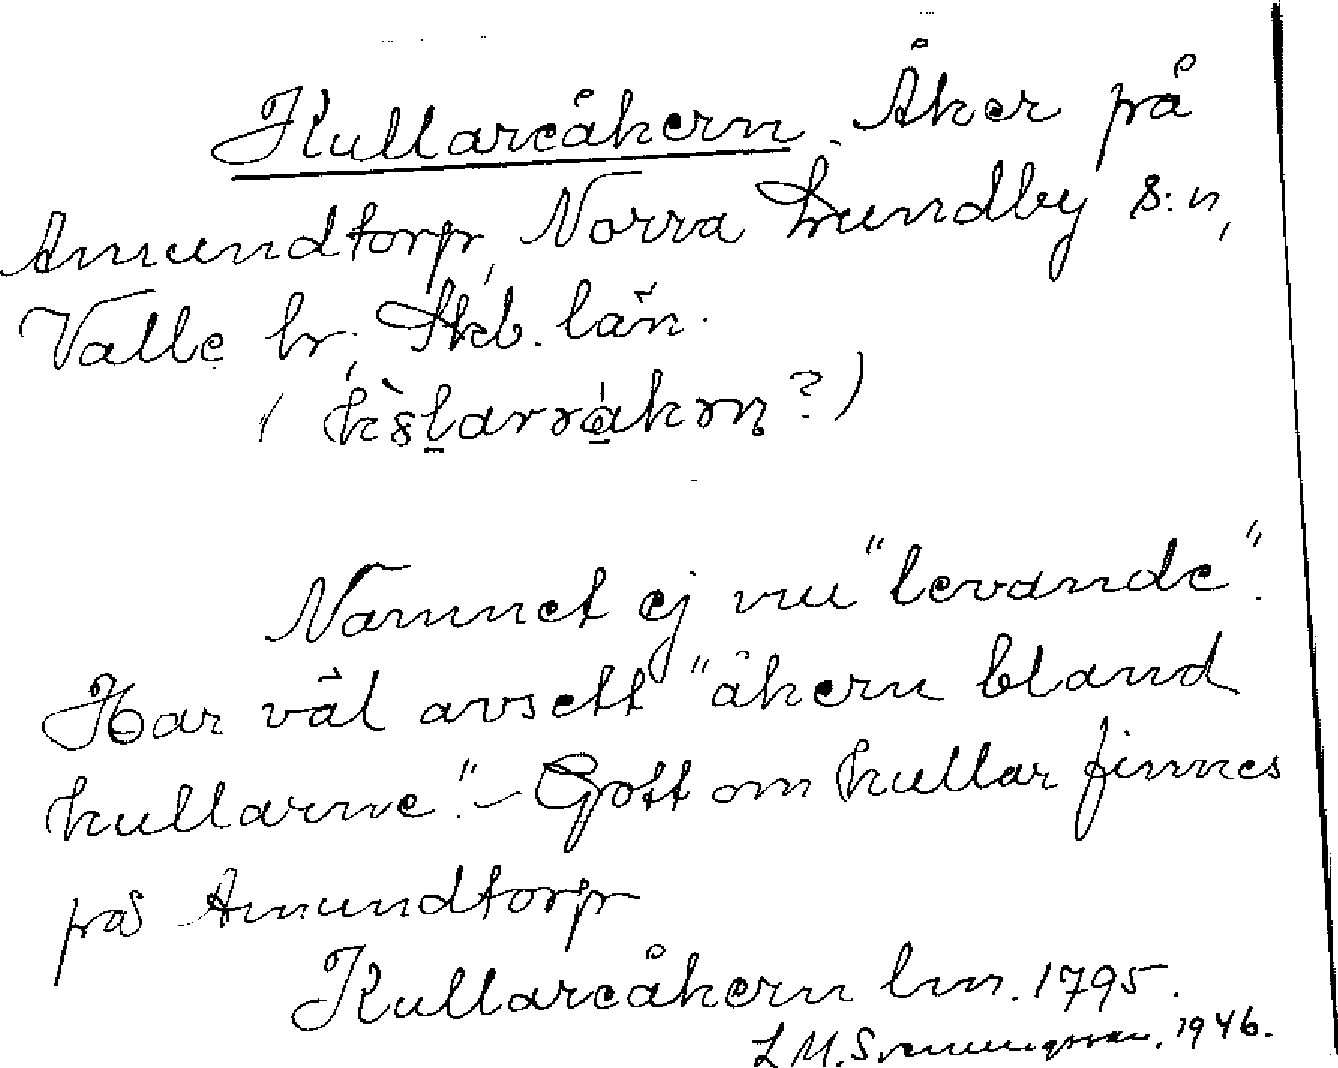 Kullareåkern. Åker på
Amundtorp, Norra Lundby s:n,
Valle hr, Skb. län.
Namnet ej nu "levande".
Har väl avsett "åkern bland
kullarne". – Gott om kullar finnes
på Amundtorp
Kullareåkern lm. 1795.
L M. Svenungsson. 1946.